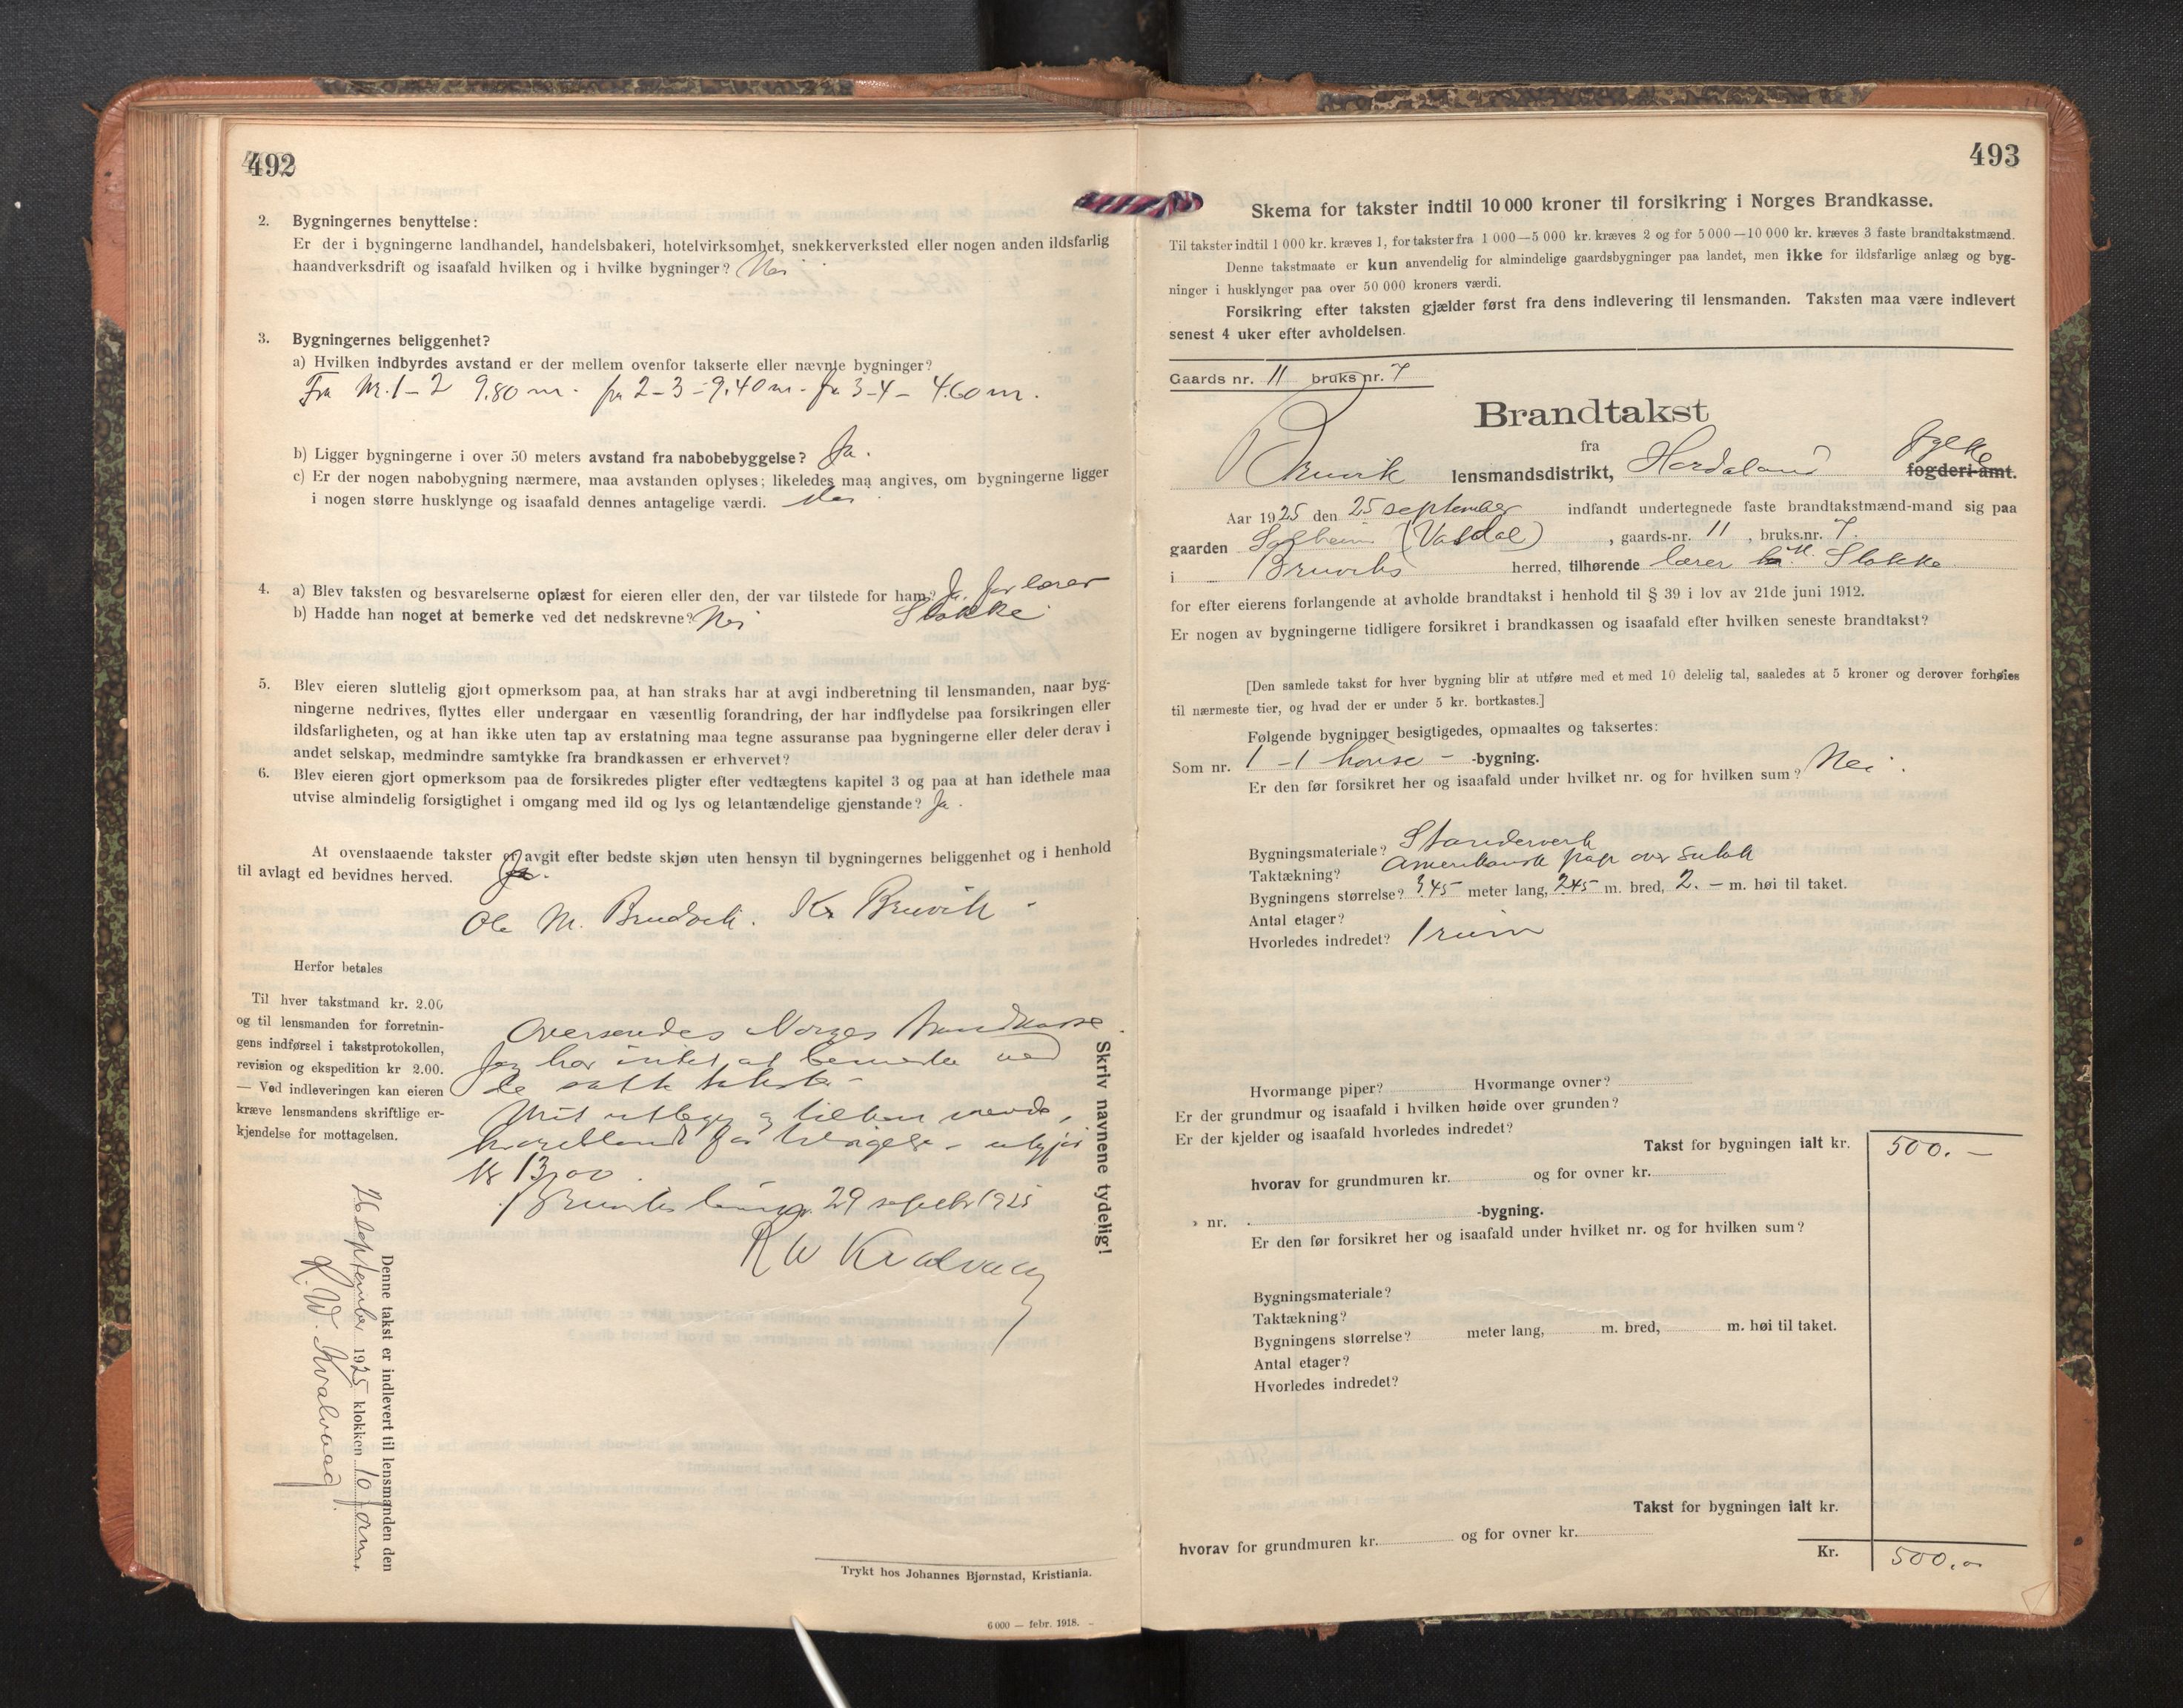 492
2. Bygningernes benyttelse:
Er der i bygningerne landhandel, handelsbakeri, hotelvirksomhet, snekkerverksted eller nogen anden ildsfarlig
haandverksdrift og isaafald hvilken og i hvilke bygninger? Nei
3. Bygningernes beliggenhet?
a) Hvilken indbyrdes avstand er der mellem ovenfor takserte eller nævnte bygninger?
Fra Nr. 1 – 2 9.80 m. fra 2 – 3 – 9.40 m. fra 3 – 4 – 4.60 m.
b) Ligger bygningerne i over 50 meters avstand fra nabobebyggelse? Ja.
c) Er der nogen nabobygning nærmere, maa avstanden oplyses; likeledes maa angives, om bygningerne ligger
i nogen større husklynge og isaafald dennes antagelige værdi. Nei
4. a) Blev taksten og besvarelserne oplæst for eieren eller den, der var tilstede for ham? Ja, for lærer
b) Hadde han noget at bemerke ved det nedskrevne? Nei Stokke
5. Blev eieren sluttelig gjort opmerksom paa, at han straks har at avgi indberetning til lensmanden, naar byg-
ningerne nedrives, flyttes eller undergaar en væsentlig forandring, der har indflydelse paa forsikringen eller
ildsfarligheten, og at han ikke uten tap av erstatning maa tegne assuranse paa bygningerne eller deler derav i
andet selskap, medmindre samtykke fra brandkassen er erhvervet?
6. Blev eieren gjort opmerksom paa de forsikredes pligter efter vedtægtens kapitel 3 og paa at han idethele maa
utvise almindelig forsigtighet i omgang med ild og lys og letantændelige gjenstande? Ja.
At ovenstaaende takster er avgit efter bedste skjøn uten hensyn til bygningernes beliggenhet og i henhold
til avlagt ed bevidnes herved. Ja.
Ole M. Brudvik. Kr Bruvik
Herfor betales
Til hver takstmand kr. 2.00
og til lensmanden for forretnin-
gens indførsel i takstprotokollen,
revision og ekspedition kr 2.00.
— Ved indleveringen kan eieren
kræve lensmandens skriftlige er-
kjendelse for mottagelsen.
Oversendes Norges Brandkasse.
Jeg har intet at bemerke ved
de satte takster –
Mit utlegg og
utgjør
kr 13,00
29 septbr 1925
R W Kvalvaag
Skriv navnene tydelig!
Denne takst er indlevert til lensmanden den
26 september 1925 klokken 10 form.
R. W. Kvalvaag.
Trykt hos Johannes Bjørnstad, Kristiania.
6 000 — febr. 1918.
493
Skema for takster indtil 10 000 kroner til forsikring i Norges Brandkasse.
Til takster indtil 1 000 kr. kræves 1, for takster fra 1 000—5 000 kr. kræves 2 og for 5 000—10 000 kr. kræves 3 faste brandtakstmænd.
Denne takstmaate er kun anvendelig for almindelige gaardsbygninger paa landet, men ikke for ildsfarlige anlæg og byg-
ninger i husklynger paa over 50 000 kroners værdi.
Forsikring efter taksten gjælder først fra dens indlevering til lensmanden. Taksten maa være indlevert
senest 4 uker efter avholdelsen.
Gaards nr. 11 bruks nr. 7
Brandtakst
fra
Bruvik lensmandsdistrikt, Hordaland fylke fogderi-amt.
Aar 1925 den 25 september indfandt undertegnede faste brandtakstmænd-mand sig paa
gaarden Solheim (Vasdal), gaards-nr. 11, bruks.nr. 7.
i Bruviks herred, tilhørende lærer Stokke
for efter eierens forlangende at avholde brandtakst i henhold til § 39 i lov av 21de juni 1912.
Er nogen av bygningerne tidligere forsikret i brandkassen og isaafald efter hvilken seneste brandtakst?
[Den samlede takst for hver bygning blir at utføre med et med 10 delelig tal, saaledes at 5 kroner og derover forhøies
til nærmeste tier, og hvad der er under 5 kr. bortkastes.]
Følgende bygninger besigtigedes, opmaaltes og taksertes:
Som nr. 1 – 1 hønse – -bygning.
Er den før forsikret her og isaafald under hvilket nr. og for hvilken sum? Nei.
Bygningsmateriale? Standerverk
Taktækning? Amerikansk pap over sutak
Bygningens størrelse? 3.45 meter lang, 2.45 m. bred, 2. – m. høi til taket.
Antal etager?
Hvorledes indredet? 1 rum
Hvormange piper? Hvormange ovner?
Er der grundmur og isaafald i hvilken høide over grunden?
Er der kjelder og isaafald hvorledes indredet?
Takst for bygningen ialt kr. 500. –
hvorav for grundmuren kr. og for ovner kr.
» nr. -bygning.
Er den før forsikret her og isaafald under hvilket nr. og for hvilken sum?
Bygningsmateriale?
Taktækning?
Bygningens størrelse? meter lang, m. bred, m. høi til taket.
Antal etager?
Hvorledes indredet?
Takst for bygningen ialt kr.
hvorav for grundmuren kr. og for ovner kr.
Kr. 500.00